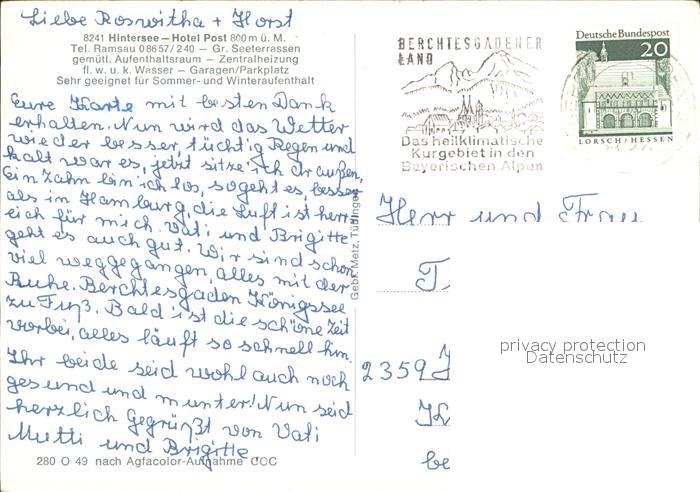 Liebe Roswitha + Horst
8241 Hintersee—Hotel Post 800 m ü. M.
Tel. Ramsau 08657/240 — Gr. Seeterrassen
gemütl. Aufenthaltsraum — Zentralheizung
fl. w. u. k. Wasser — Garagen/Parkplatz
Sehr geeignet für Sommer- und Winteraufenthalt
Eure Karte mit besten Dank
erhalten. Nun wird das Wetter
wieder besser, tüchtig Regen und
kalt war es, jetzt sitze ich draußen,
Ein Zahn bin ich los, so geht es, besser
als in Hamburg, die Luft ist herr
lich für mich. Vati und Brigitte
geht es auch gut. Wir sind schon
viel weggegangen, alles mit der
Ruhe. Berchtesgaden Königssee
zu Fuß. Bald ist die schöne Zeit
vorbei, alles läuft so schnell hin.
Ihr beide seid wohl auch noch
gesund und munter! Nun seid
herzlich Gegrüßt von Vati
Mutti und Brigitte.
280 O 49 nach Agfacolor-Aufnahme COC
Gebr. Metz, Tübingen
BERCHTESGADENER
LAND
Das heilklimatische
Kurgebiet in den
Bayerischen Alpen
Deutsche Bundespost
20
LORSCH/HESSEN
Herr und Frau
T
2359
be
privacy protection
Datenschutz